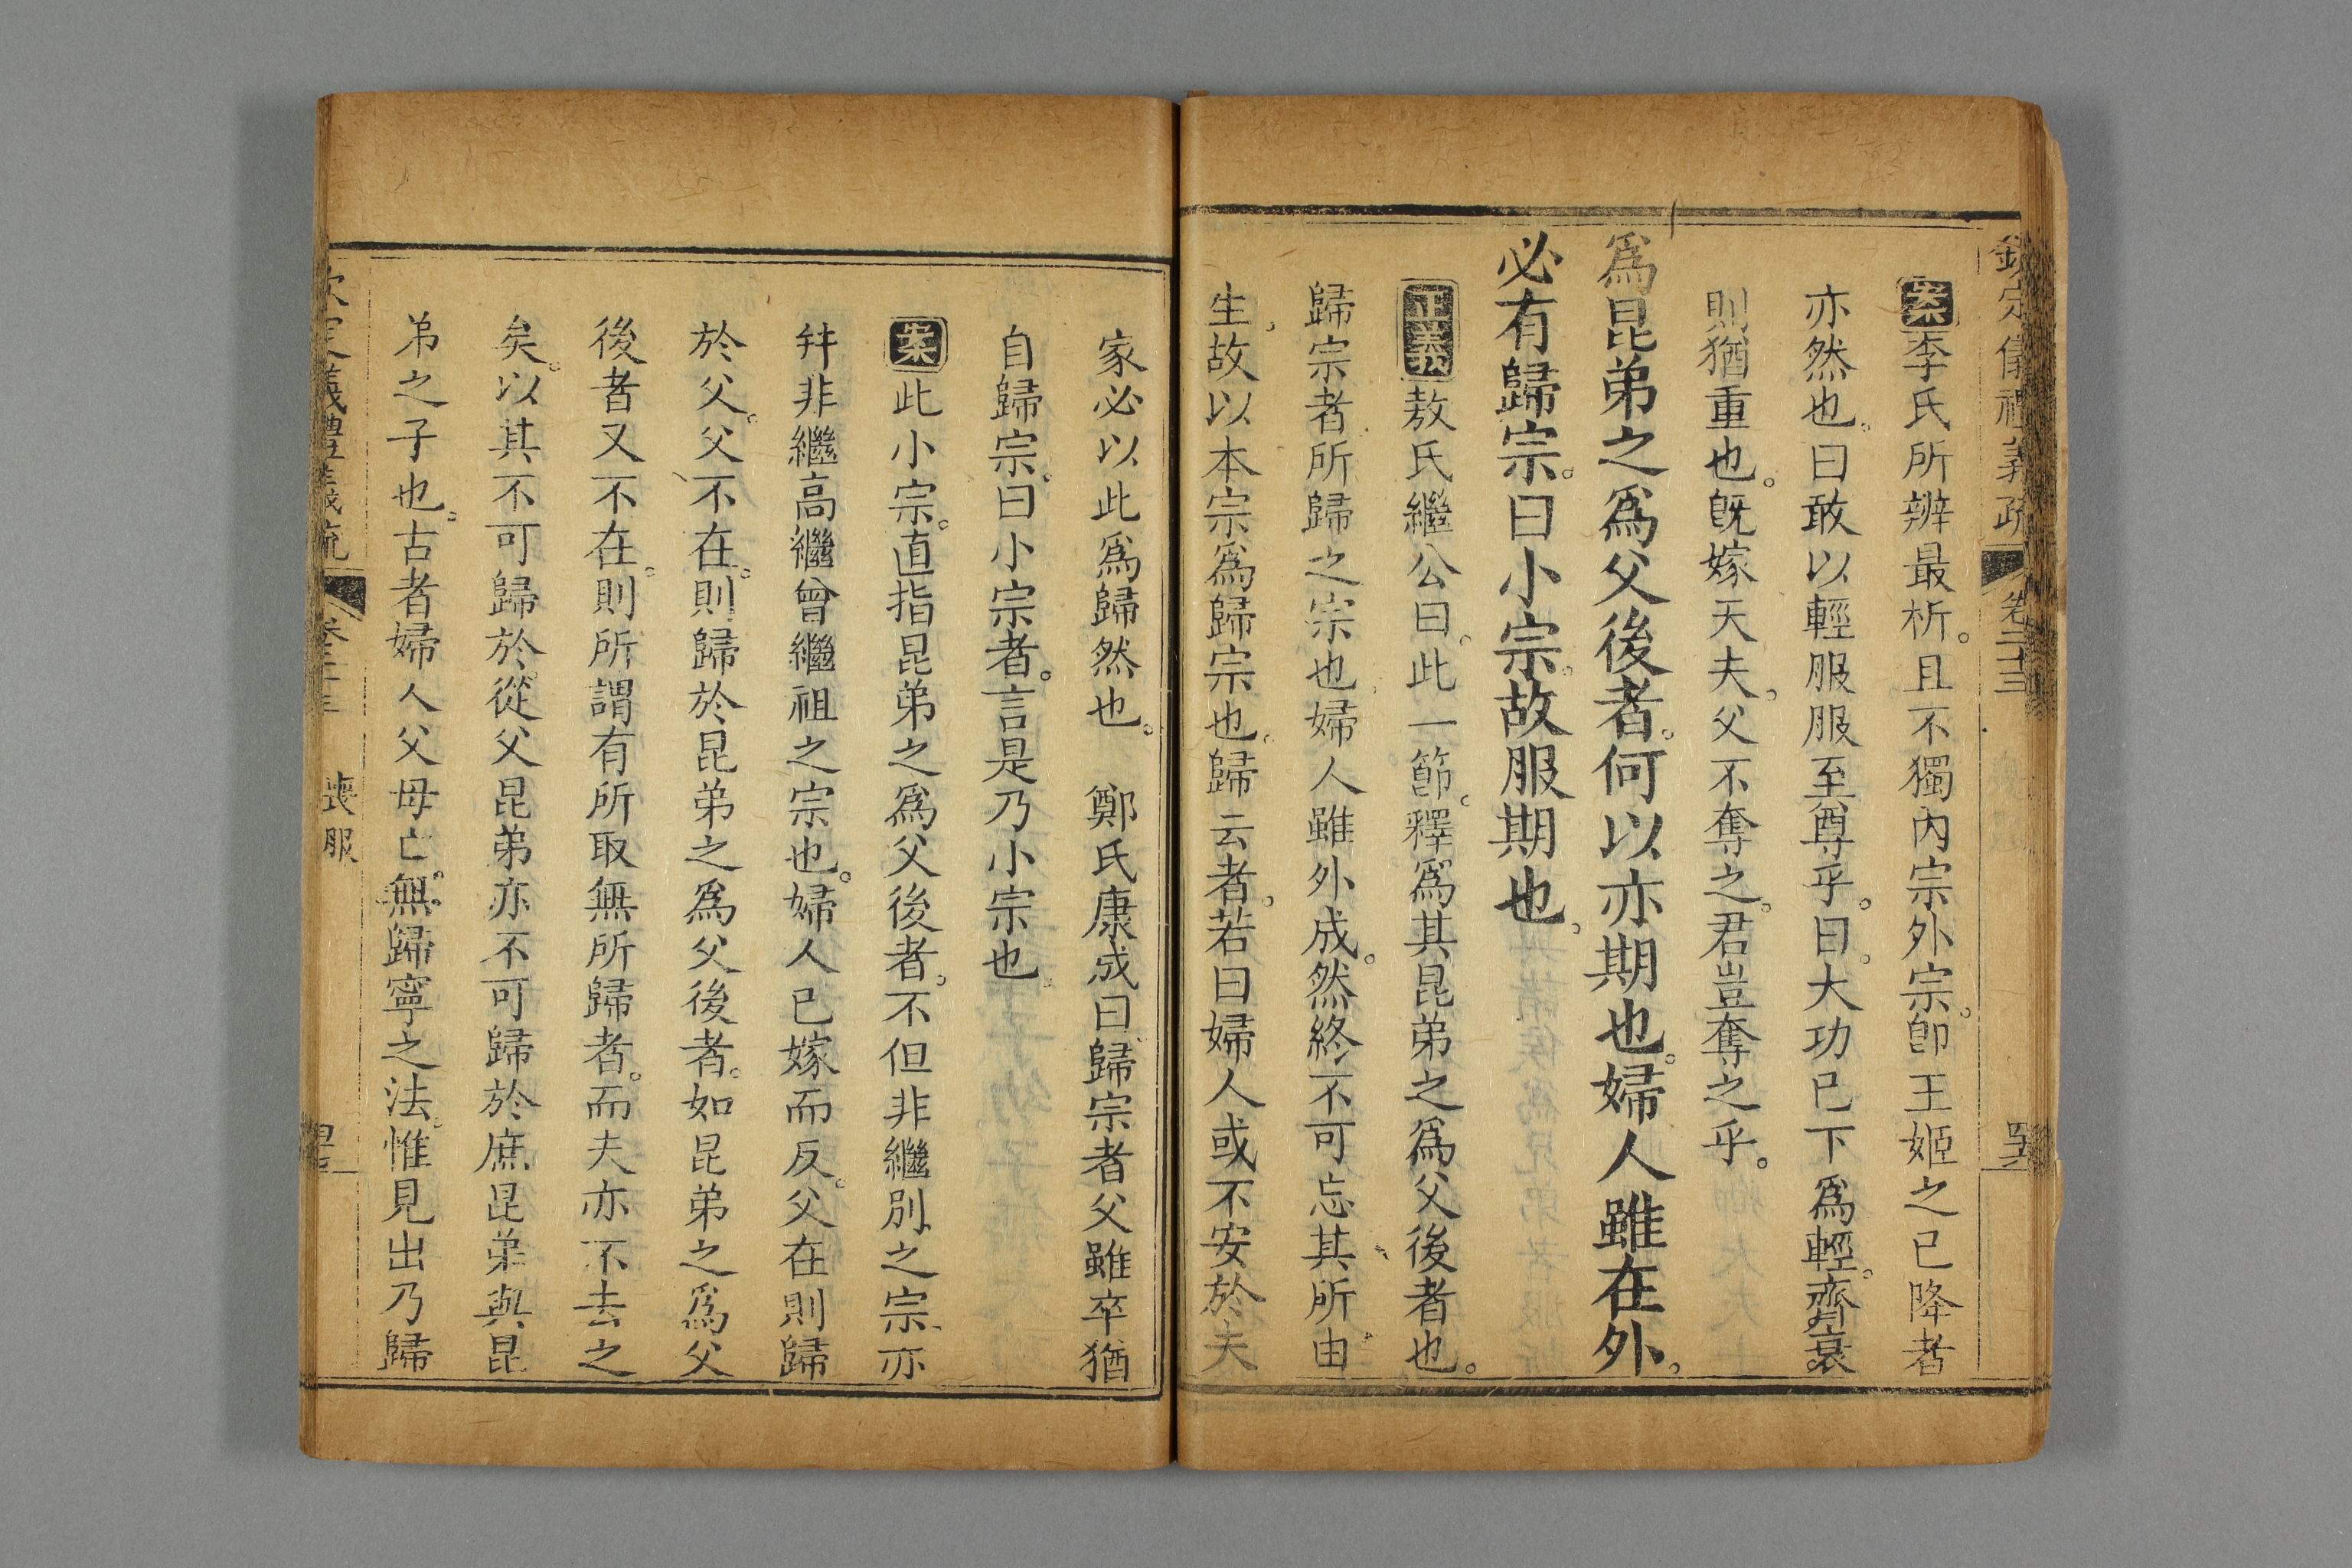 欽定儀禮義疏 卷二十三
案李氏所辨最析。且不獨內宗外宗。卽王姬之已降者
亦然也。曰敢以輕服服至尊乎。曰。大功已下爲輕。齊衰
則猶重也。旣嫁天夫。父不奪之。君豈奪之乎。
爲昆弟之爲父後者。何以亦期也。婦人雖在外。
必有歸宗。曰小宗。故服期也。
正義敖氏繼公曰。此一節。釋爲其昆弟之爲父後者也。
歸宗者。所歸之宗也。婦人雖外成。然終不可忘其所由
生。故以本宗爲歸宗也。歸云者。若曰婦人或不安於夫
家必以此爲歸然也。 鄭氏康成曰歸宗者父雖卒猶
自歸宗。曰小宗者。言是乃小宗也。
案此小宗。直指昆弟之爲父後者。不但非繼別之宗。亦
幷非繼高繼曾繼祖之宗也。婦人已嫁而反。父在則歸
於父。父不在。則歸於昆弟之爲父後者。如昆弟之爲父
後者又不在。則所謂有所取無所歸者。而夫亦不去之
矣。以其不可歸於從父昆弟亦不可歸於庶昆弟與昆
弟之子也。古者婦人父母亡。無歸寧之法。惟見出乃歸
欽定儀禮義疏 卷二十三 喪服